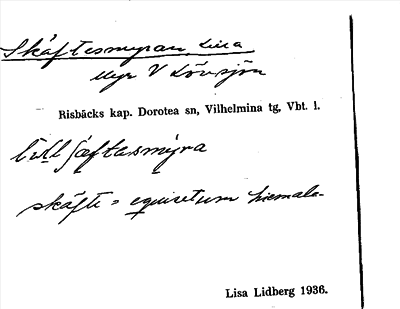 Skäftesmyran, Lilla
Myr V Lövsjön
Risbäcks kap. Dorotea sn, Vilhelmina tg, Vbt. l.
skäfte = equisetum hiemale
Lisa Lidberg 1936.